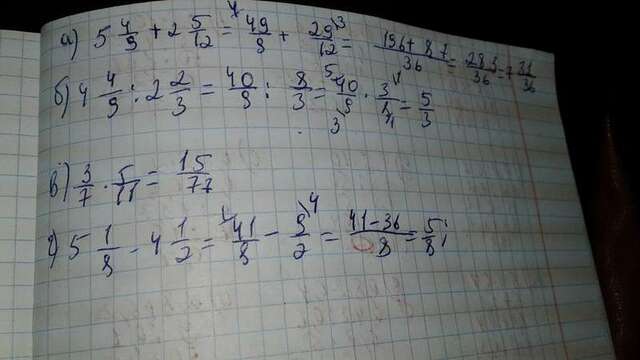 а) 5 4/9 + 2 5/12 = 49/9 + 29/12 = 196+87/36 = 283/36 = 7 31/36
б) 4 4/9 : 2 2/3 = 40/9 : 8/3 = 40/9 · 3/8 = 5/3
в) 3/7 · 5/11 = 15/77
г) 5 1/8 - 4 1/2 = 41/8 - 9/2 = 41-36/8 = 5/8;